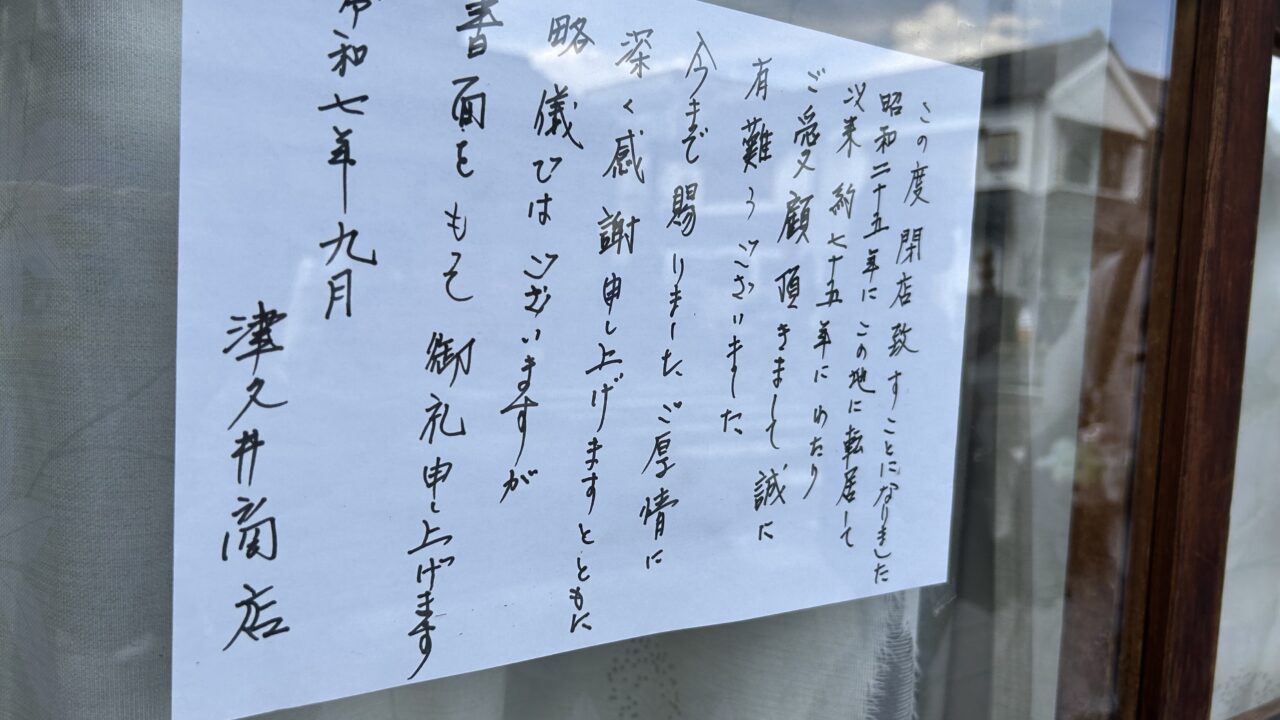 この度 閉店致すことになりました
昭和二十五年にこの地に転居して
以来 約七十五年にわたり
ご愛顧頂きまして 誠に
有難うございました
今まで賜りましたご厚情に
深く感謝申し上げますとともに
略儀ではございますが
書面をもって御礼申し上げます
令和七年九月
津久井商店